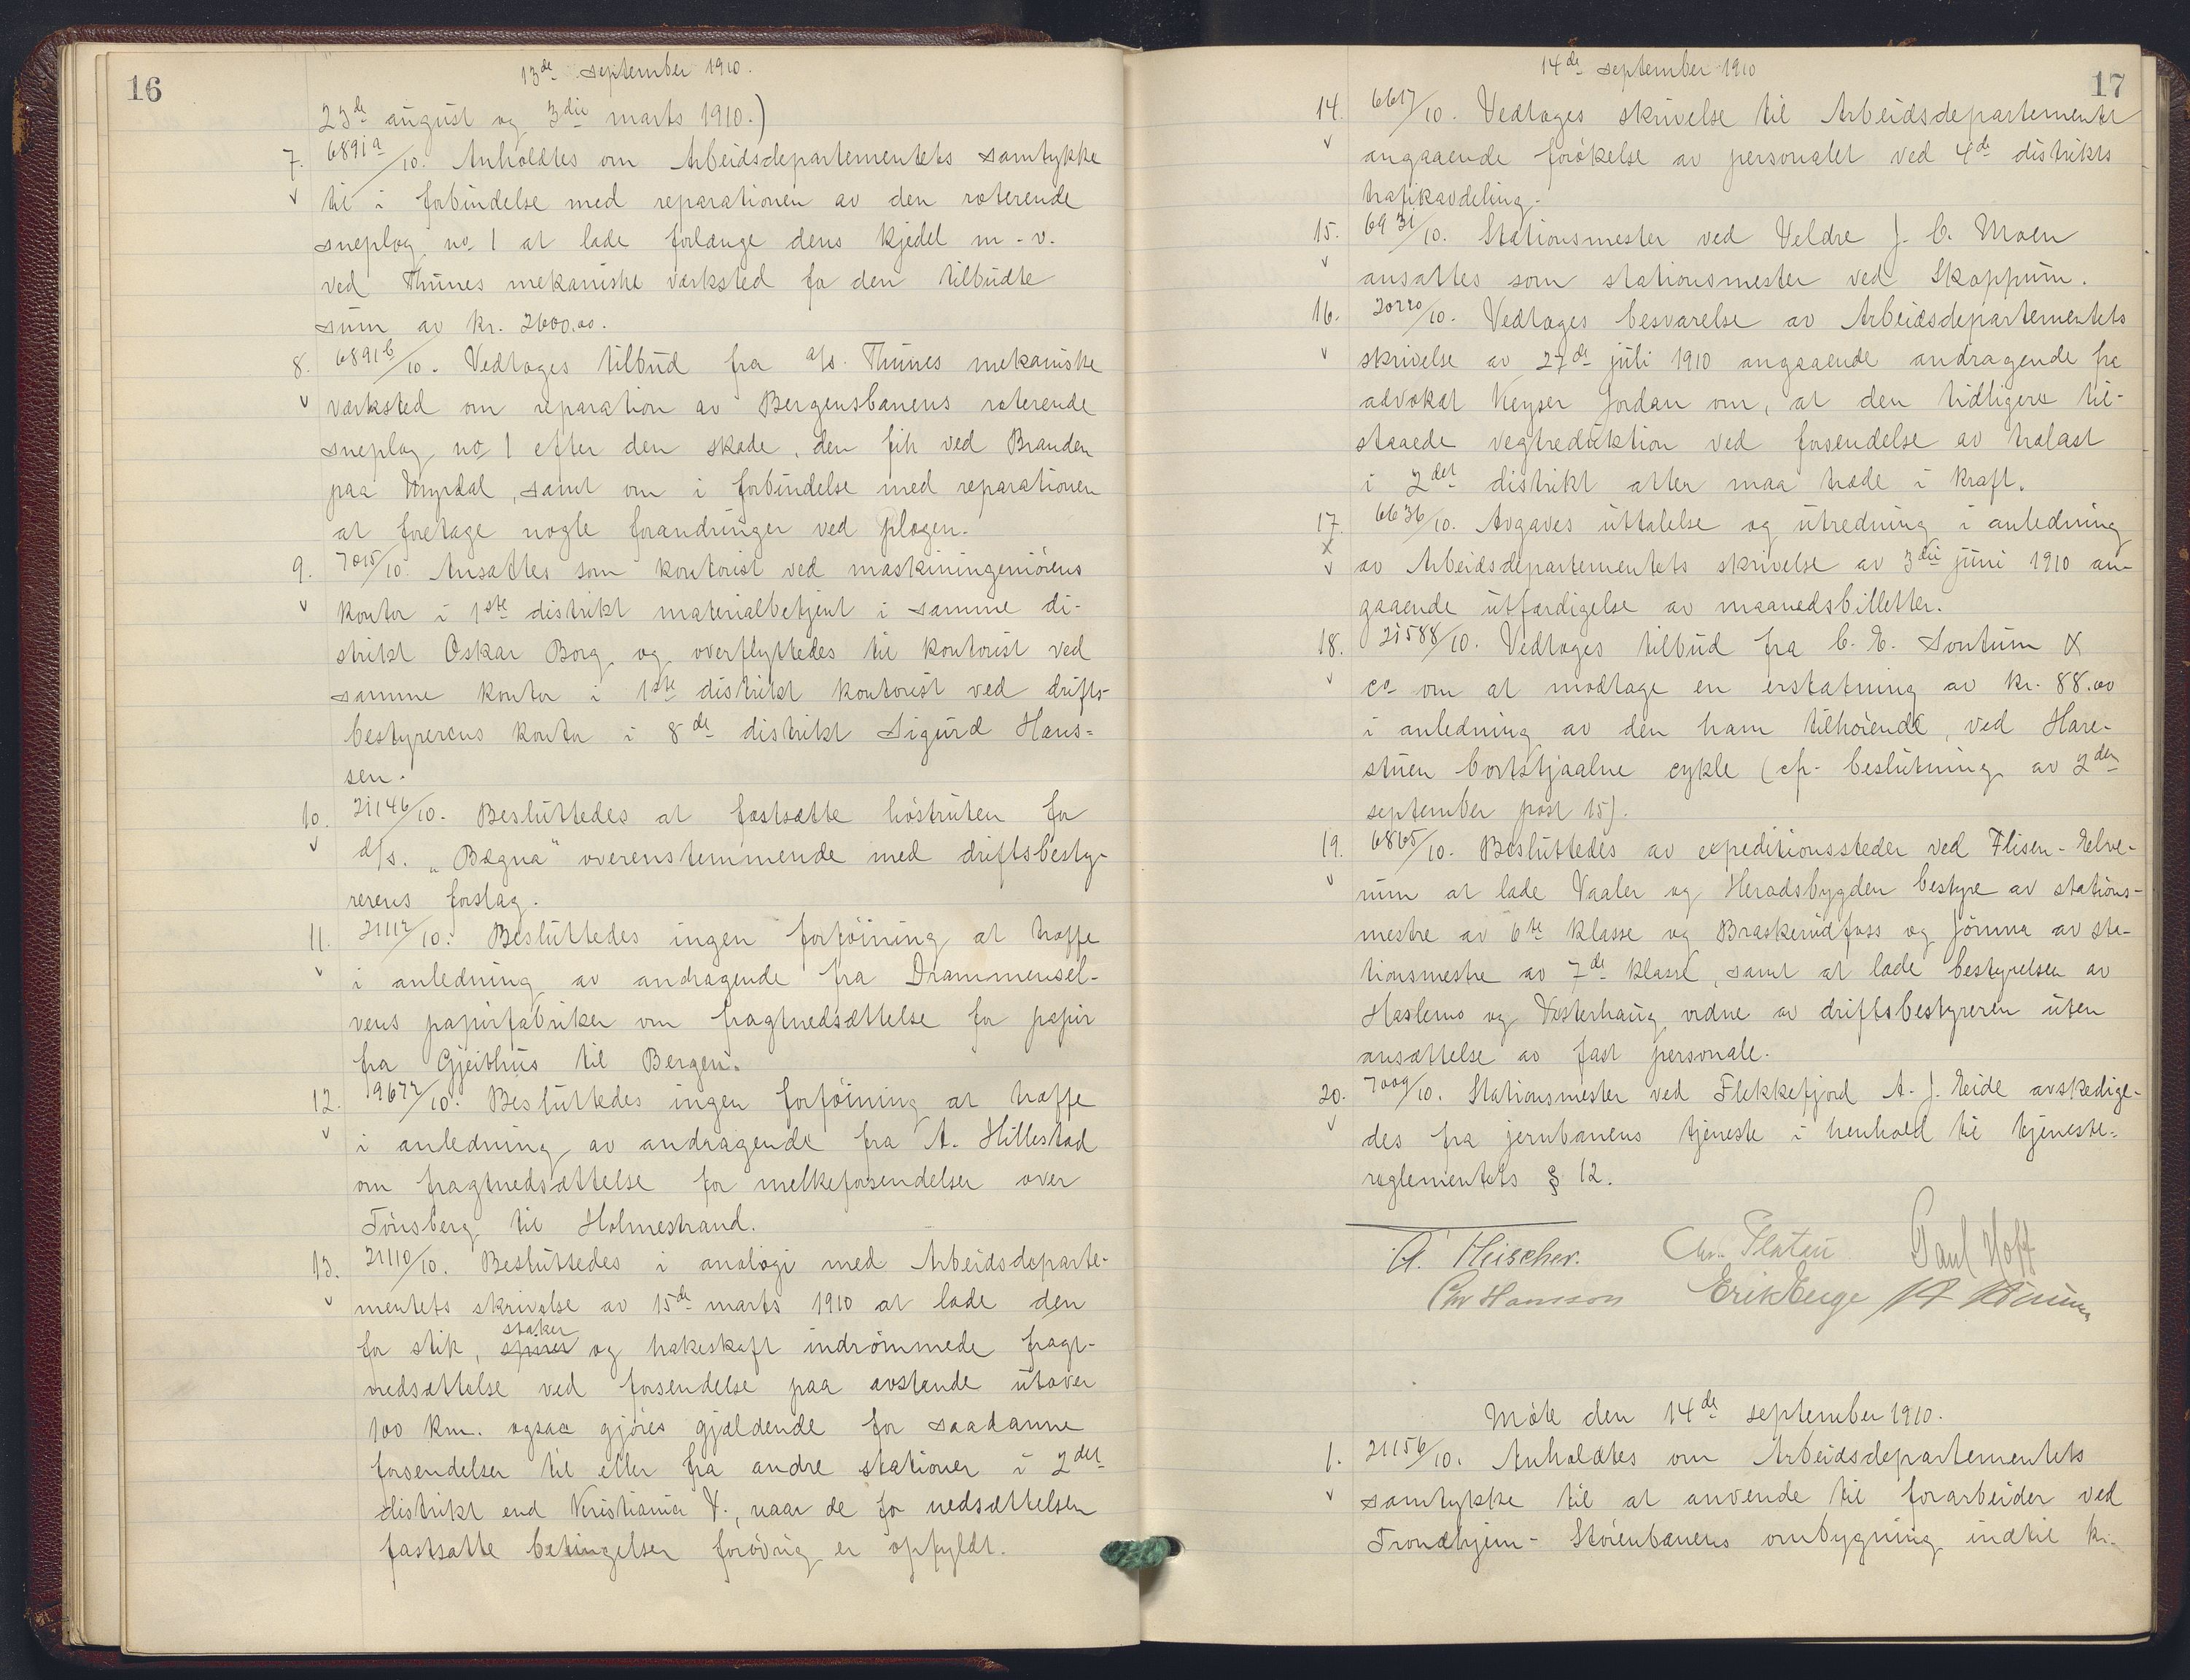 16
13de september 1910.
23de august og 3die marts 1910.)
7. 6891a/10. Anholdtes om Arbeidsdepartementets samtykke
v til i forbindelse med reparationen av den roterende
sneplog no. 1 at lade forlænge dens kjedel m.v.
ved Thunes mekaniske værksted for den tilbudte
sum av kr. 2600.00.
8. 6891b/10. Vedtoges tilbud fra a/s. Thunes mekaniske
v værksted om reparation av Bergensbanens roterende
sneplog no 1 efter den skade, den fik ved Branden
paa Myrdal, samt om i forbindelse med reparationen
at foretage nogle forandringer ved plogen.
9. 7015/10. Ansattes som kontorist ved maskiningeniørens
v kontor i 1ste distrikt materialbetjent i samme di-
strikt Oskar Borg og overflyttedes til kontorist ved
samme kontor i 1ste distrikt kontorist ved drifts-
bestyrerens kontor i 8de distrikt Sigurd Hans-
sen.
10. 21146/10. Besluttedes at fastsætte høstruten for
v d/s. „Bægna" overenstemmende med driftsbesty-
rerens forslag.
11. 21112/10. Besluttedes ingen forføining at træffe
v i anledning av andragende fra Drammensel-
vens papirfabriker om fragtnedsættelse for papir
fra Gjeithus til Bergen.
12. 19672/10. Besluttedes ingen forføining at træffe
v i anledning av andragende fra A. Hillestad
om fragtnedsættelse for melkeforsendelser over
Tønsberg til Holmestrand.
13. 21110/10. Besluttedes i analogi med Arbeidsdeparte-
v mentets skrivelse av 15de marts 1910 at lade den
staker
for stik, spirer og hakeskaft indrømmede fragt-
nedsættelse ved forsendelse paa avstande utover
100 km. ogsaa gjøres gjældende for saadanne
forsendelser til eller fra andre stationer i 2det
distrikt end Kristiania V., naar de for nedsættelsen
fastsatte betingelser forøvrig er opfyldt.
17
14de september 1910
14. 6617/10. Vedtoges skrivelse til Arbeidsdepartementet
v angaaende forøkelse av personalet ved 4de distrikts
trafikavdeling.
15. 6931/10. Stationsmester ved Veldre J. C. Moen
v ansattes som stationsmester ved Skoppum.
16. 20220/10. Vedtoges besvarelse av Arbeidsdepartementets
v skrivelse av 27de juli 1910 angaaende andragende fra
advokat Keyser Jordan om, at den tidligere til-
staaede vegtreduktion ved forsendelse av trælast
i 2det distrikt atter maa træde i kraft.
17. 6636/10. Avgaves uttalelse og utredning i anledning
x v av Arbeidsdepartementets skrivelse av 3die juni 1910 an-
gaaende utfærdigelse av maanedsbilletter.
18. 21588/10. Vedtoges tilbud fra C. E. Sontum &
v co om at modtage en erstatning av kr. 88.00
i anledning av den ham tilhørende, ved Hare-
stuen bortstjaalne cykle (cfr. beslutning av 2den
september post 15).
19. 6865/10. Besluttedes av expeditionssteder ved Flisen-Elve-
v rum at lade Vaaler og Heradsbygden bestyre av stations-
mestre av 6te klasse og Braskerudfoss og Jømna av sta-
tionsmestre av 7de klasse, samt at lade bestyrelsen av
Haslemo og Vesterhaug ordne av driftsbestyreren uten
ansættelse av fast personale.
20. 7009/10. Stationsmester ved Flekkefjord A. J. Eide avskedige-
v des fra jernbanens tjeneste i henhold til tjeneste-
reglementets § 12.
A. Fleischer. Chr. Platou Paul Hoff
Chr Hansson Erik Enge
Møte den 14de september 1910.
1. 21156/10. Anholdtes om Arbeidsdepartementets
v samtykke til at anvende til forarbeider ved
Trondhjem-Størenbanens ombygning indtil kr.